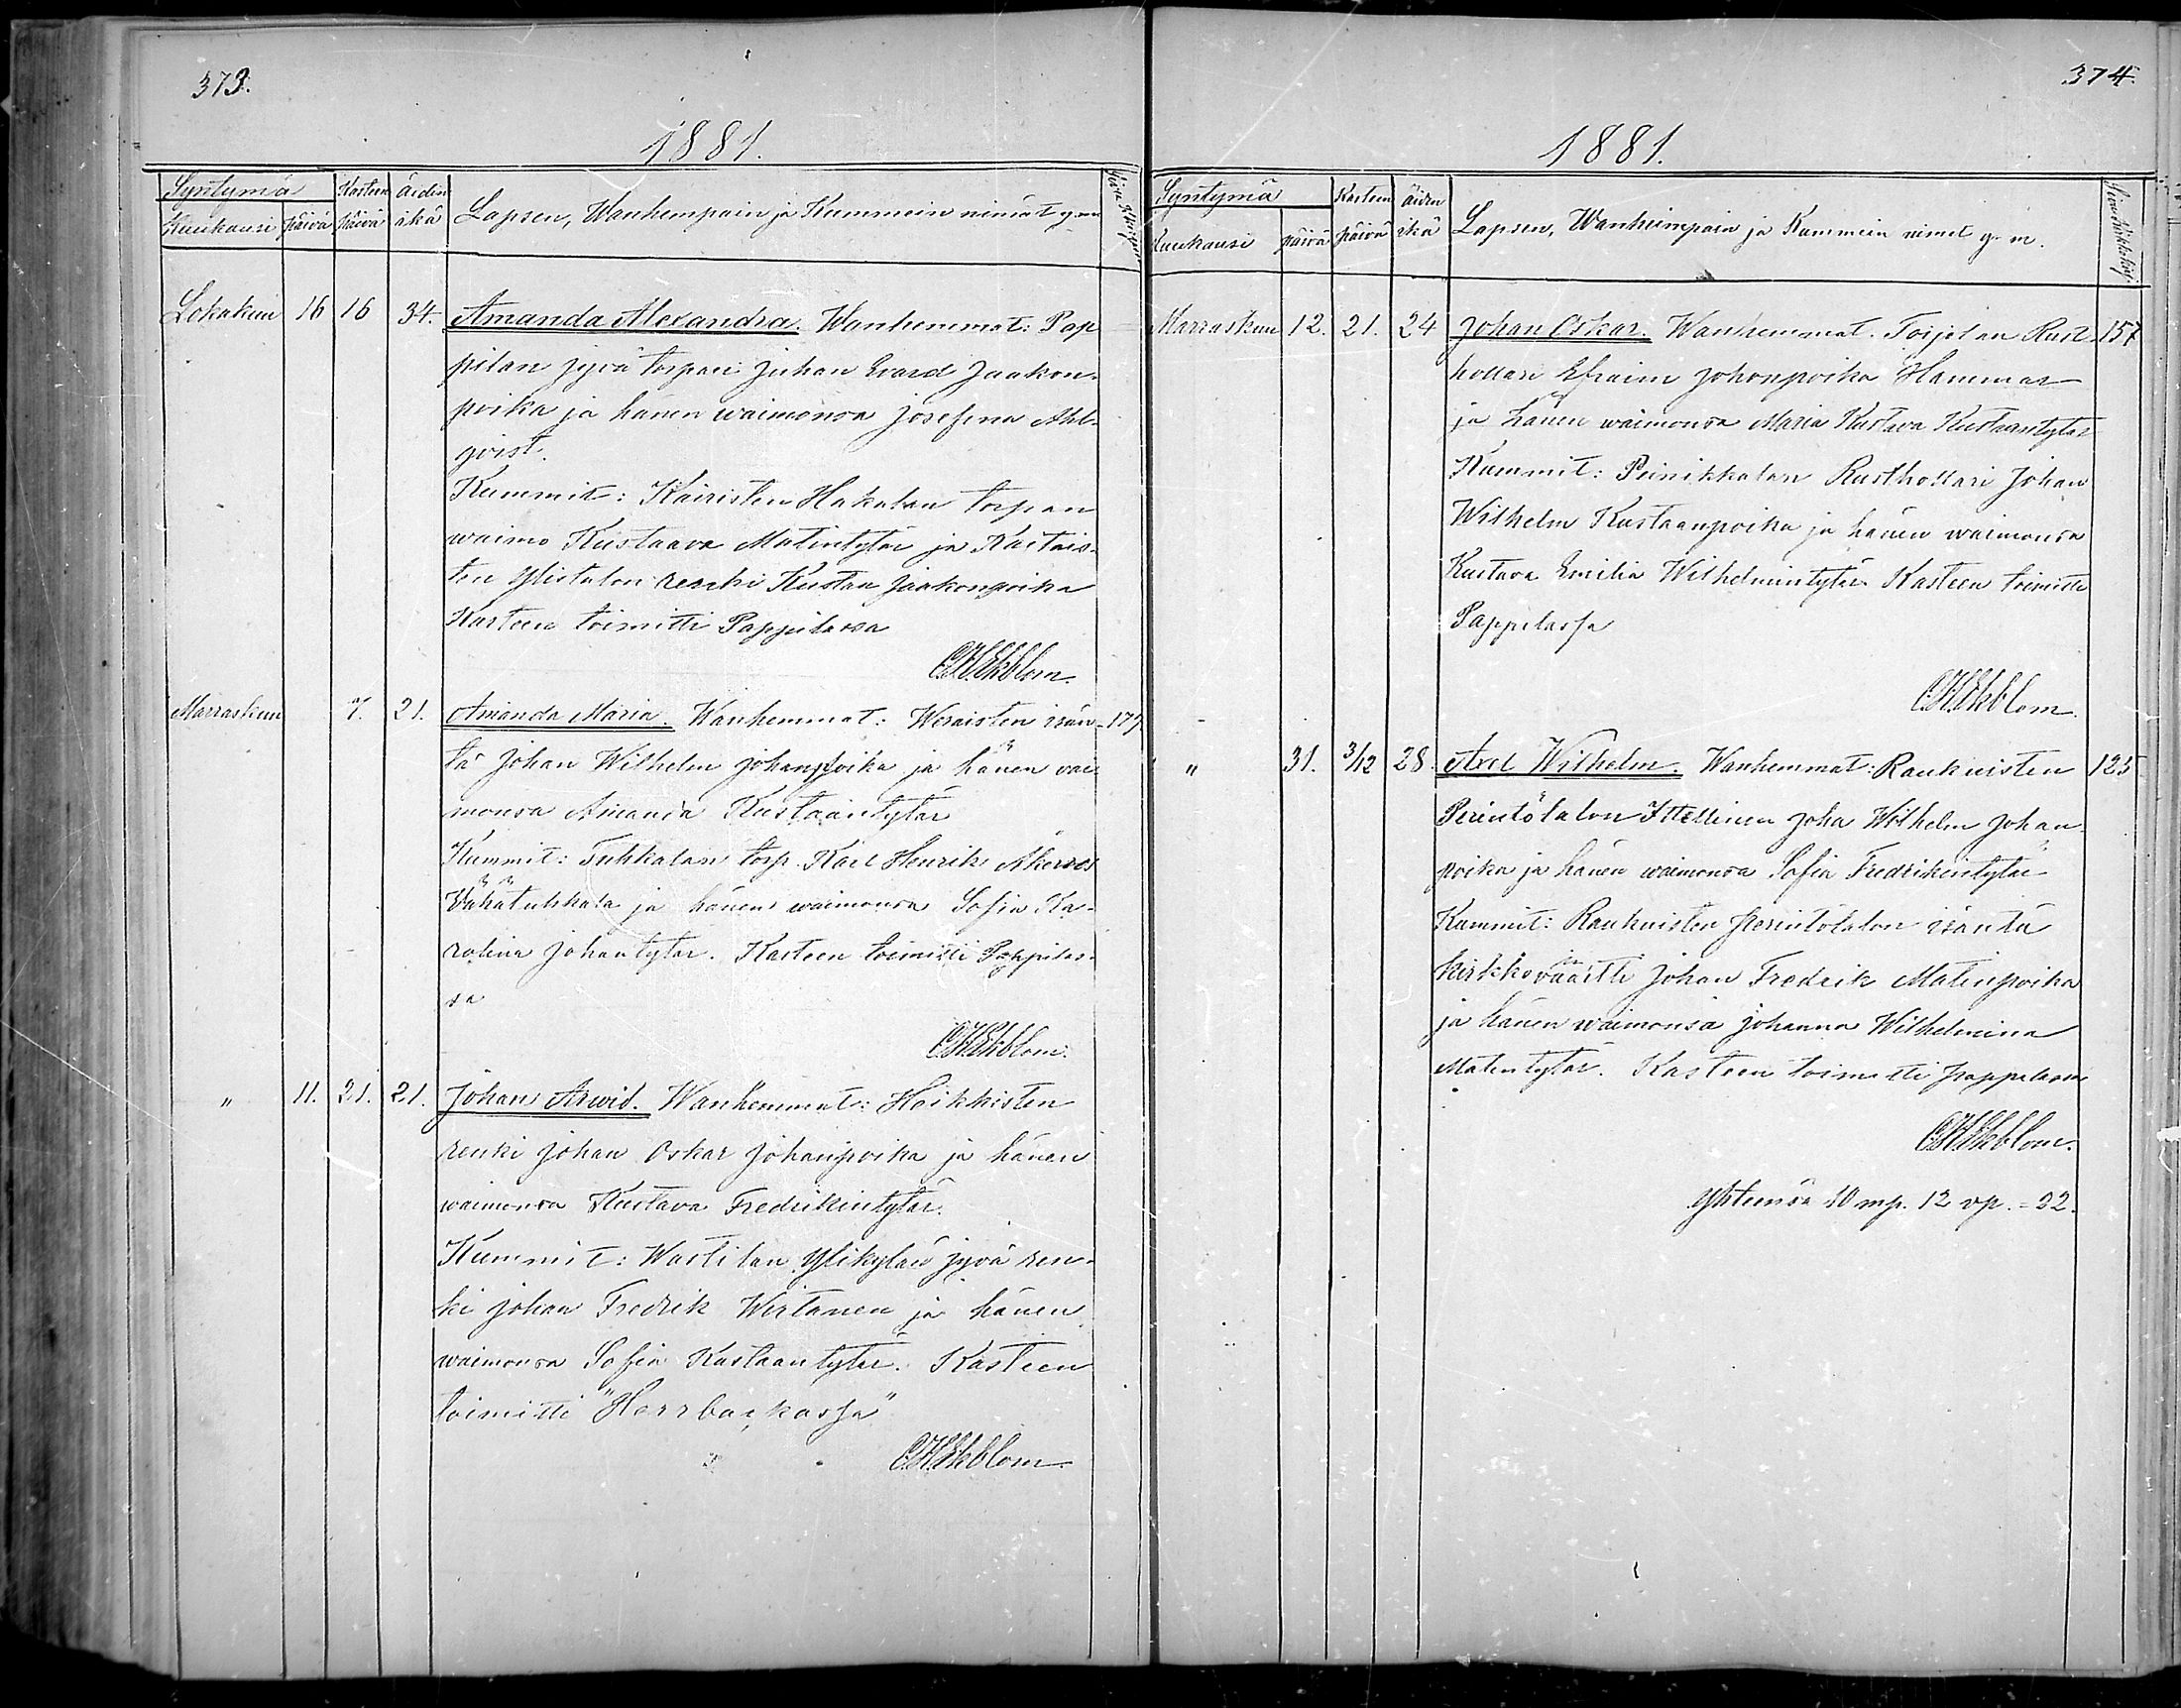 373.
1881.
Syntymä
Kasteen
äidin
Kuukausi
päivä
päivä
ikä
Lapsen, Wanhempain ja Kummein nimät y.m
Lokakuu 16 16 34. Amanda Alexandra. Wanhemmat: Pap
pilan jyvä torpari Juhan Evard Jaakon-
poika ja hänen waimonsa Josefina Ahl-
qvist.
Kummit: Kairisten Hakalan torpan
waimo Kustaava Matintytär ja Kaitais-
ten Ylistalon renki Kustaa Jaakonpoika
Kasteen toimitti Pappilassa
C.H.Ekblom.
Marraskuu 7. 21. Amanda Maria. Wanhemmat: Weraisten isän- 179
tä Johan Wilhelm Johanpoika ja hänen vai
monsa Amanda Kustaantytär
Kummit: Tuhkalan torp. Karl Henrik
Vähätuhkala ja hänen waimonsa Sofia Ka-
rolina Johantytär. Kasteen toimitti Pappilas-
sa
C.H.Ekblom.
" 11. 21. 21. Johan Arwid. Wanhemmat: Heikkisten
renki Johan Oskar Johanpoika ja hänen
waimonsa Kustava Fredrikintytär.
Kummit: Wastilan Ylikylän jyvä ren-
ki Johan Fredrik Wirtanen ja hänen
waimonsa Sofia Kustaantytär. Kasteen
toimitti "Herrbackassa"
C.H.Ekblom
374.
1881.
Syntymä
Kasteen
äiden
Kuukausi
päivä
päivä
ikä
Lapsen, Wanheimpain ja Kummein nimet y. m.
Marraskuu 12. 21. 24 Johan Oskar. Wanhemmat. Torjolan Rust 157
hollari Efraim Johonpoika Hammar
ja hänen waimonsa Maria Kustava Kustaantytär
Kummit: Peinikkalan Rusthollari Johan
Wilhelm Kustaanpoika ja hänen waimonsa
Kustava Emilia Wilhelmintytär Kasteen toimitti
Pappilassa
C.H.Ekblom
" 31. 3/12 28. Axel Wilhelm. Wanhemmat: Raukuisten 125
Perintötalon Ittellinen Joha Wilhelm Johan
poika ja hänen waimonsa Sofia Fredrikintytär
Kummit: Raukuisten perintötalon isäntä
kirkkoväärtti Johan Fredrik Matinpoika
ja hänen waimonsa Johanna Wilhelmina
Matintytär. Kasteen toimitti pappilassa
C.H.Ekblom.
Yhteensä 10 mp. 12 vp. = 22.